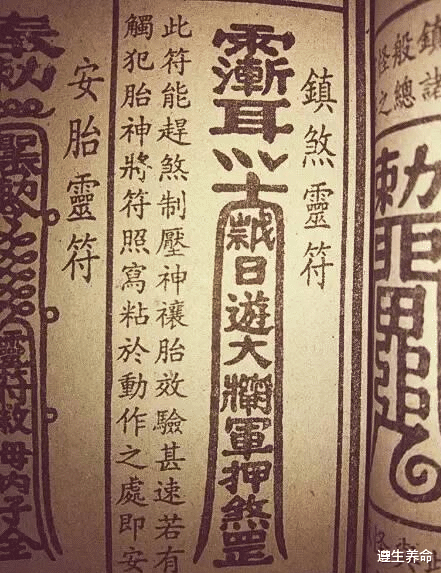 鎮諸
般總
怪之
勅
鎮煞靈符
日遊大將軍押煞罡
此符能趕煞制壓神禳胎效驗甚速若有
觸犯胎神將符照寫粘於動作之處即安
安胎靈符
奉勅
靈符救母內子全
遵生养命